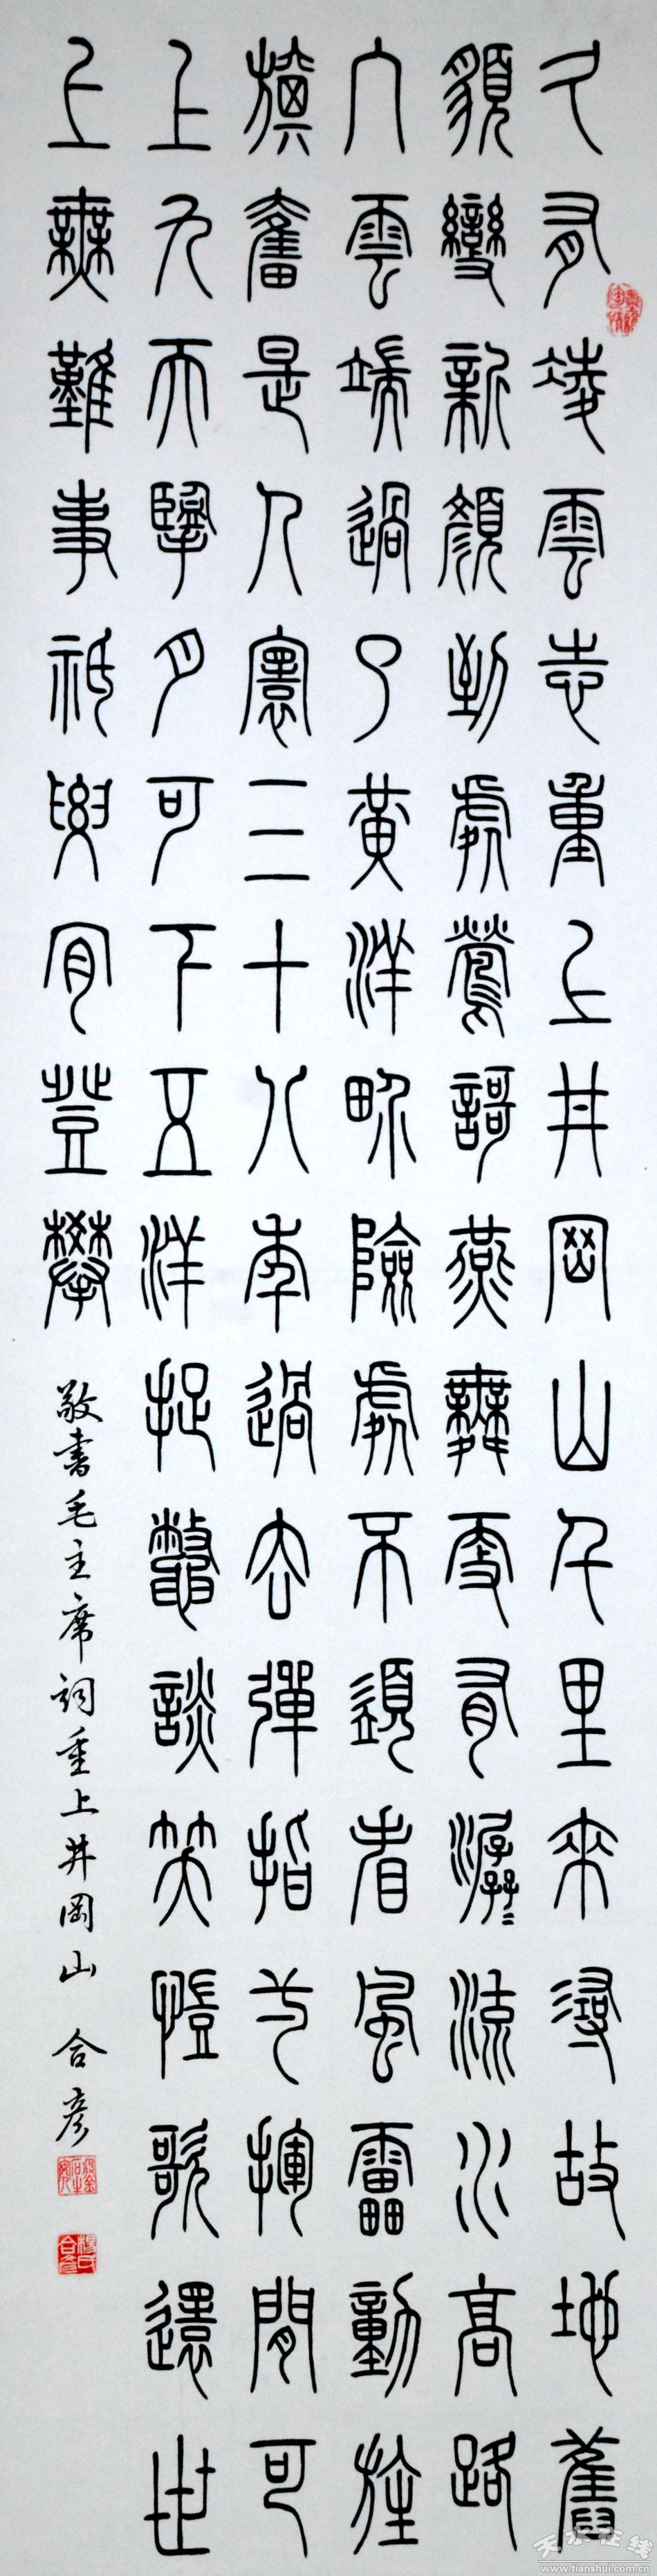 久有凌雲志重上井岡山千里來尋故地舊
貌變新顏到處鶯謌燕舞更有潺〻流水高路
入雲端過了黃洋畍險處不須看風雷動旌
旗奮是人寰三十八年過去彈指一揮間可
上九天擥月可下五洋捉鱉談笑愷歌還世
上無難事祇要肯登攀
敬書毛主席詞重上井岡山 合彥
天水在线
www.tianshui.com.cn